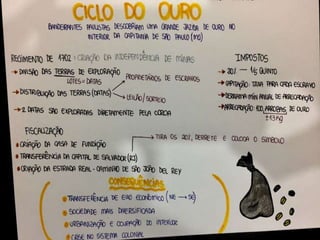 CICLO DO OURO
BANDEIRANTES PAULISTAS DESCOBRIAM UMA GRANDE JAZIDA DE OURO NO
INTERIOR DA CAPITANIA DE SÃO PAULO (MG)
REGIMENTO DE 1702: CRIAÇÃO DA INTENDÊNCIA DE MINAS
→ DIVISÃO DAS TERRAS DE EXPLORAÇÃO
LOTES = DATAS
→ DISTRIBUIÇÃO DAS TERRAS (DATAS)
PROPRIETÁRIOS DE ESCRAVOS
LEILÃO/SORTEIO
→ 2 DATAS SÃO EXPLORADAS DIRETAMENTE PELA COROA
IMPOSTOS
→ 20% — 1/5 QUINTO
→ CAPITAÇÃO: TAXA PARA CADA ESCRAVO
→ DERRAMA: MÍN. ANUAL DE ARRECADAÇÃO
→ ARRECADAÇÃO: 100 ARROBAS DE OURO
FISCALIZAÇÃO
CRIAÇÃO DA CASA DE FUNDIÇÃO
→ TIRA OS 20%, DERRETE E COLOCA O SÍMBOLO
TRANSFERÊNCIA DA CAPITAL DE SALVADOR (RJ)
CRIAÇÃO DA ESTRADA REAL - CAMINHO DE SÃO JOÃO DEL REY
CONSEQUÊNCIAS
TRANSFERÊNCIA DE EIXO ECONÔMICO (NE → SE)
SOCIEDADE MAIS DIVERSIFICADA
URBANIZAÇÃO E OCUPAÇÃO DO INTERIOR
CRISE NO SISTEMA COLONIAL